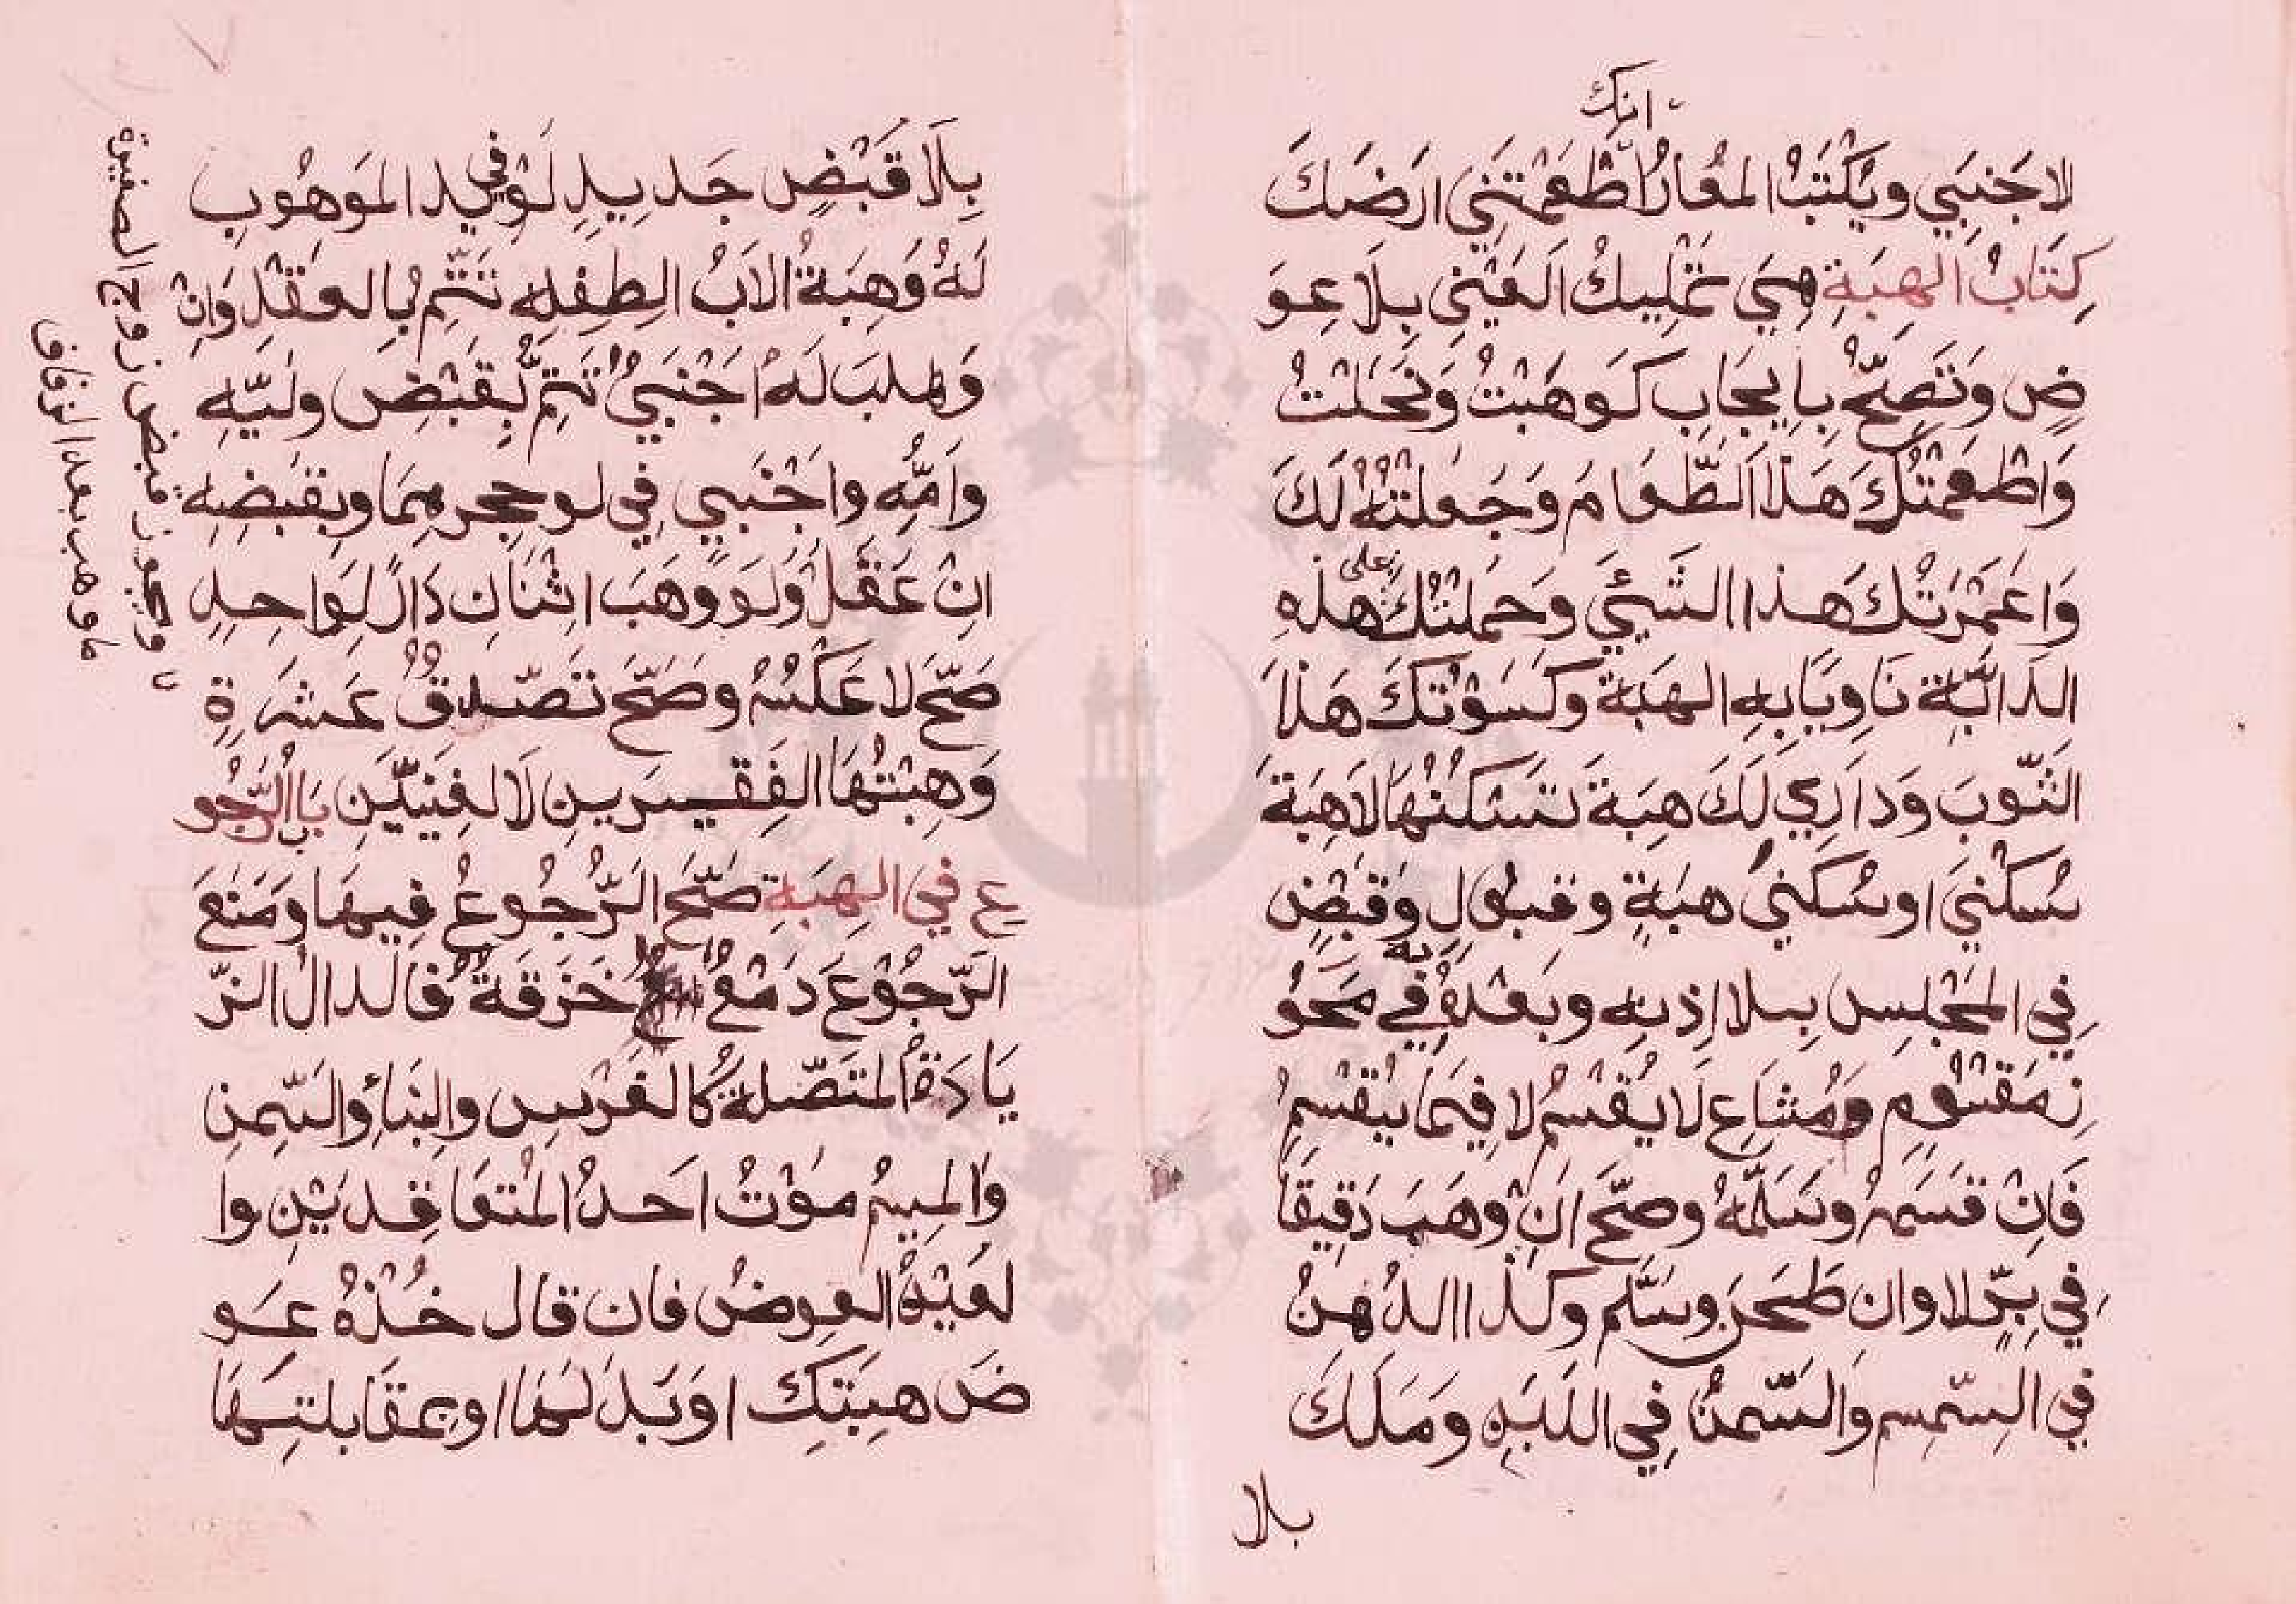 انك
لاجنبي ويكتب المعار اطعمتني ارضك
كتاب الهبة هي تمليك العين بلا عو
ض وتصح بايجاب كوهبت ونحلت
واطعمتك هذا الطعام وجعلته لك
واعمرتك هذا الشيئ وحملتك على هذه
الدابة ناويا به الهبة وكسوتك هذا
الثوب وداري لك هبة تسكنها لا هبة
سكني او سكني هبة وقبول وقبض
في المجلس بلا اذنه وبعده به في محو
ز مقسوم ومشاع لا يقسم لا فيما يقسم
فان قسمه وسلمه وصح ان وهب دقيقا
في بر لا وان طحن وسلم وكذا الدهن
في السمسم والسمن في اللبن وملك
بلا
بلا قبض جديد لو في يد الموهوب
له وهبة الاب لطفله تتم بالعقد وان
وهب له اجنبي تتم بقبض وليه
وامه واجنبي في لو حجرهما وبقبضه
ان عقل ولو وهب اثنان دارا لواحد
صح لا عكسه وصح تصدق عشرة
وهبتها لفقيرين لا لغنيين باب الرجو
ع في الهبة صح الرجوع فيها ومنع
الرجوع دمع خزقة فالدال الز
يادة المتصلة كالغرس والبناء والسمن
والميم موت احد المتعاقدين وا
لعين العوض فان قال خذه عو
ض هبتك او بدلها او بمقابلتها
ويجوز قبض زوج الصغيرة
ما وهب بعد الزفاف